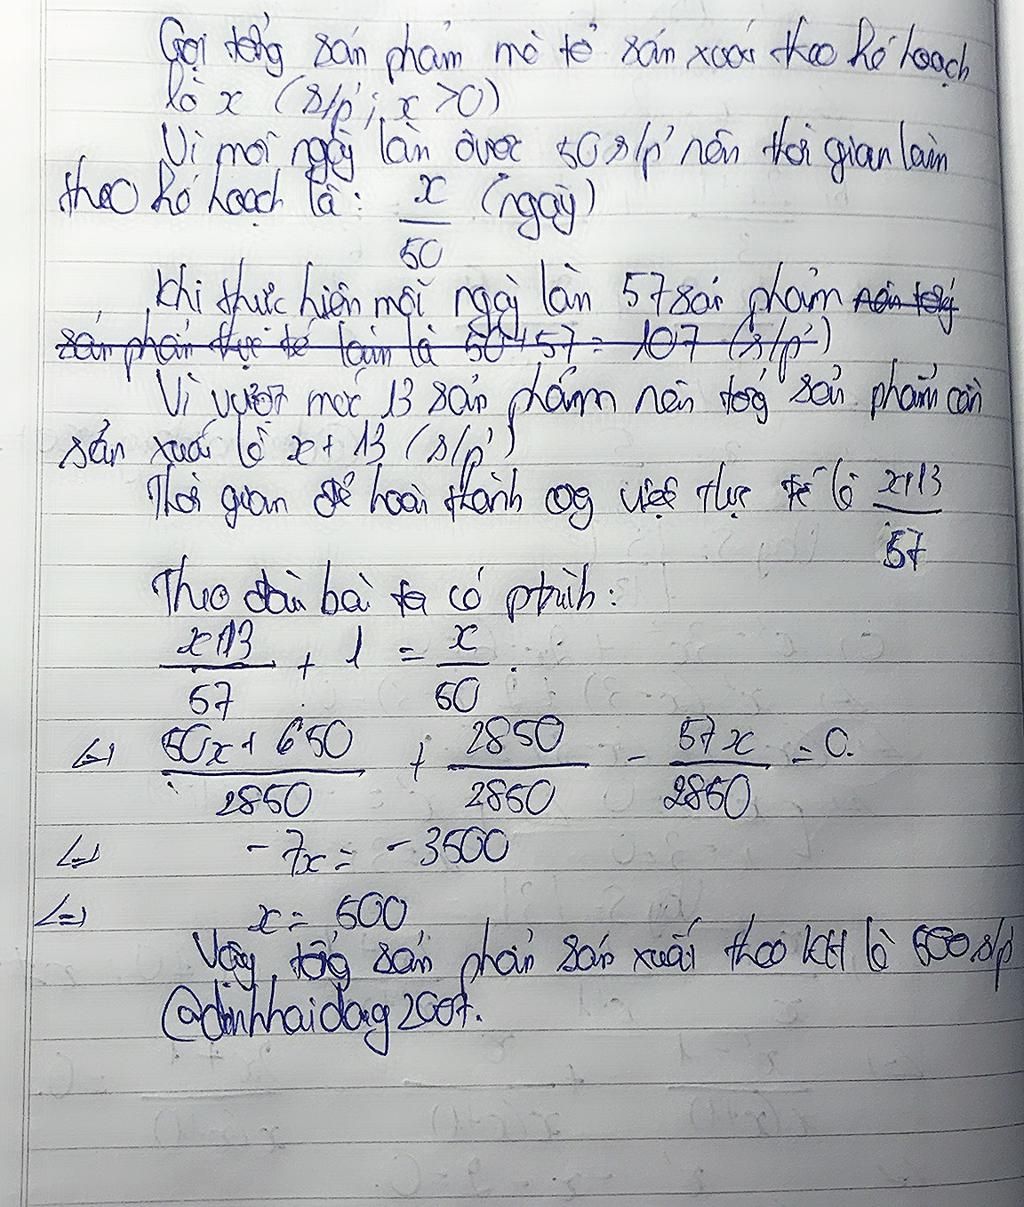 Gọi tổng sản phẩm mà tổ sản xuất theo kế hoạch
là x (s/p'; x > 0)
Vì mỗi ngày làm được 50 s/p' nên thời gian làm
theo kế hoạch là: x/50 (ngày)
Khi thực hiện mỗi ngày làm 57 sản phẩm nên tổng
sản phẩm thực tế làm là 50+57 = 107 (s/p')
Vì vượt mức 13 sản phẩm nên tổng sản phẩm cần
sản xuất là x + 13 (s/p')
Thời gian để hoàn thành cg việc thực tế là x+13/57
Theo đầu bài ta có ptrình:
x+13/57 + 1 = x/50.
<=> 50x + 650/2850 + 2850/2850 - 57x/2850 = 0.
<=> -7x = -3500
<=> x = 500
Vậy, tổng sản phẩm sản xuất theo KH là 500 s/p
@dinhhaidang2007.